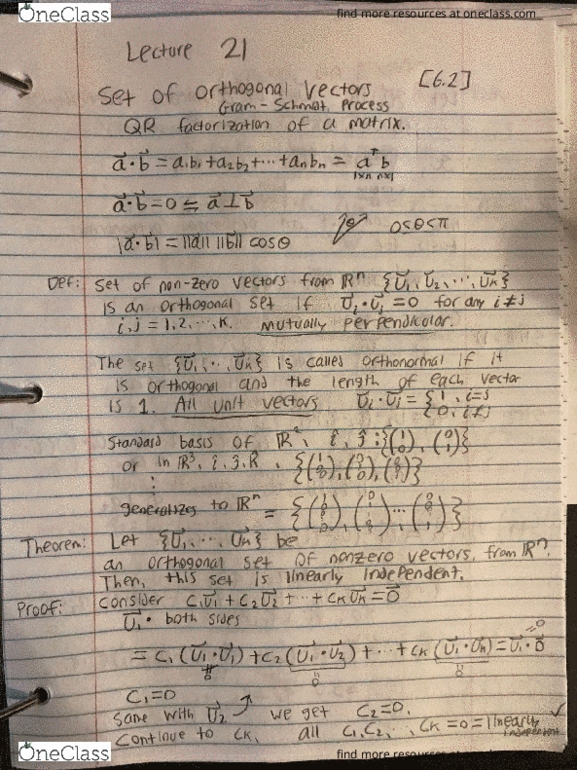 OneClass
find more resources at oneclass.com
Lecture 21
Set of orthogonal vectors [6.2]
Gram-Schmidt Process
QR factorization of a matrix.
a⃗·b⃗ = a₁b₁ + a₂b₂ + ··· + aₙbₙ = a⃗ᵀb
1×n n×1
a⃗·b⃗ = 0 ⇆ a⃗ ⊥ b⃗
|a⃗·b⃗| = ||a|| ||b|| cosθ θ 0≤θ≤π
Def: Set of non-zero vectors from ℝⁿ {U⃗₁, U⃗₂, ..., U⃗ₖ}
is an orthogonal set if U⃗ᵢ·U⃗ⱼ = 0 for any i≠j
i,j = 1,2,..., K. mutually perpendicular.
The set {U⃗₁, ..., U⃗ₖ} is called orthonormal if it
is orthogonal and the length of each vector
is 1. All unit vectors U⃗ᵢ·U⃗ⱼ = {1, i=j
{0, i≠j
Standard basis of ℝ², î, ĵ : {(1 0), (0 1)}
or in ℝ³, î, ĵ, k̂, {(1 0 0), (0 1 0), (0 0 1)}
⋮
generalizes to ℝⁿ =
Theorem: Let {U⃗₁, ..., U⃗ₖ} be
an orthogonal set of nonzero vectors, from ℝⁿ.
Then, this set is linearly independent.
Proof: Consider C₁U⃗₁ + C₂U⃗₂ + ··· + CₖU⃗ₖ = 0⃗
U⃗₁· both sides
=0
= C₁(U⃗₁·U⃗₁) + C₂(U⃗₁·U⃗₂) + ··· + Cₖ(U⃗₁·U⃗ₖ) = U⃗₁·0⃗
≠0 0 0
C₁=0
Same with U⃗₂ we get C₂=0.
Continue to Cₖ, all C₁, C₂, ..., Cₖ = 0 = linearly independent ✓
OneClass
find more resources at oneclass.com